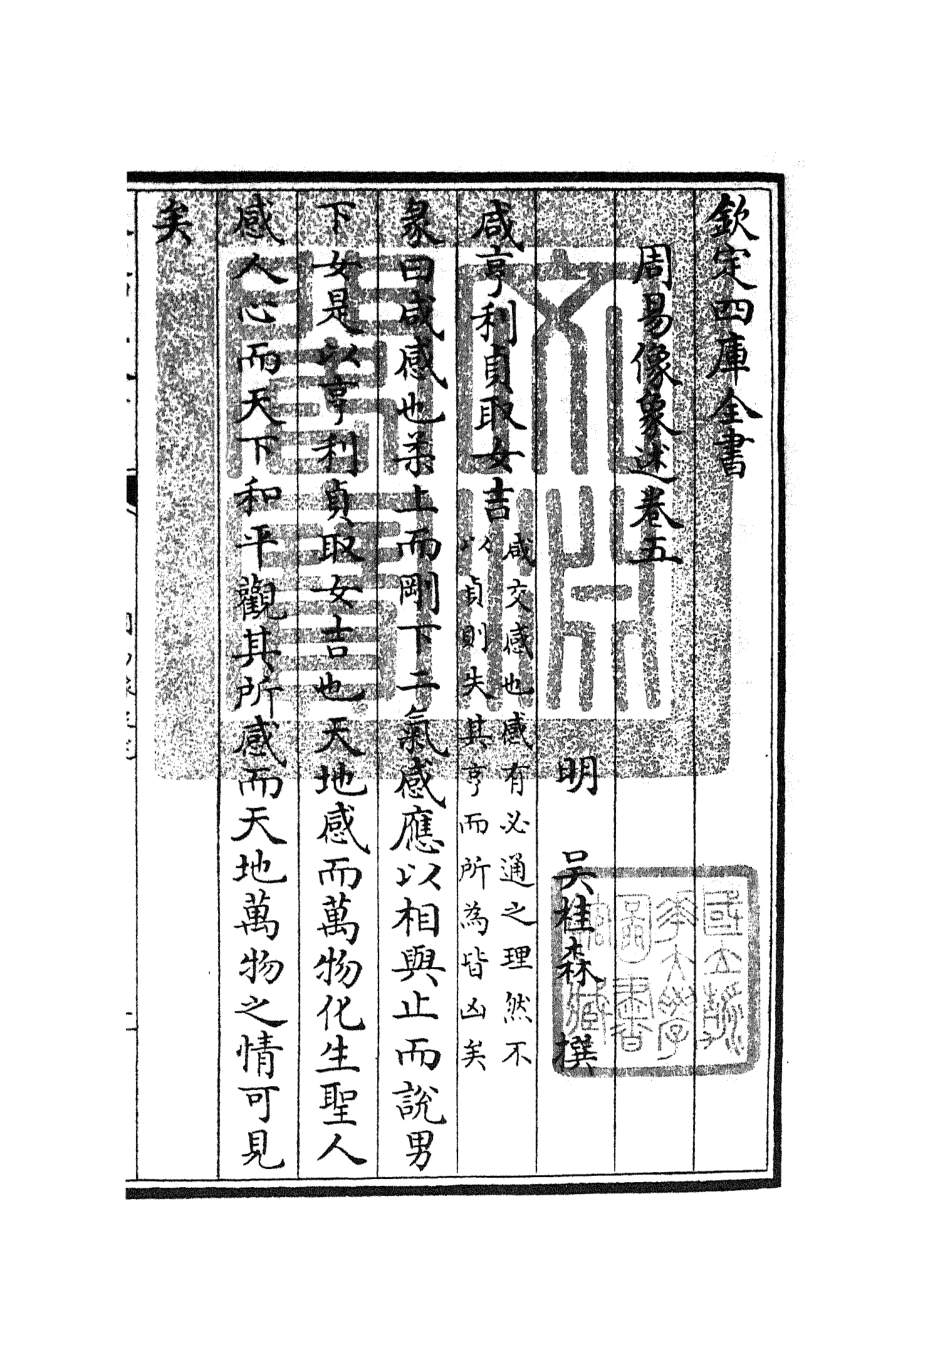 欽定四庫全書
周易像象述卷五
明 吳桂森 撰
咸亨利貞取女吉
咸交感也感有必通之理然不
以貞則失其亨而所為皆凶矣
彖曰咸感也柔上而剛下二氣感應以相與止而說男
下女是以亨利貞取女吉也天地感而萬物化生聖人
感人心而天下和平觀其所感而天地萬物之情可見
矣